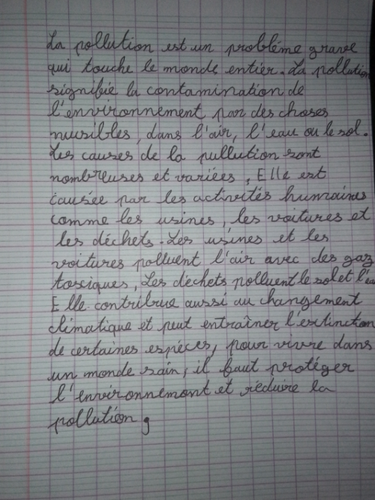 La pollution est un problème grave
qui touche le monde entier. La pollution
signifie la contamination de
l'environnement par des choses
nuisibles, dans l'air, l'eau ou le sol.
Les causes de la pullution sont
nombreuses et variées, Elle est
causée par les activités humaines
comme les usines, les voitures et
les déchets. Les usines et les
voitures polluent l'air avec des gaz
toxiques, Les déchets polluent le sol et l'eau
Elle contribue aussi au changement
climatique et peut entraîner l'extinction
de certaines espèces, pour vivre dans
un monde sain, il faut protéger
l'environnement et reduire la
pollution.